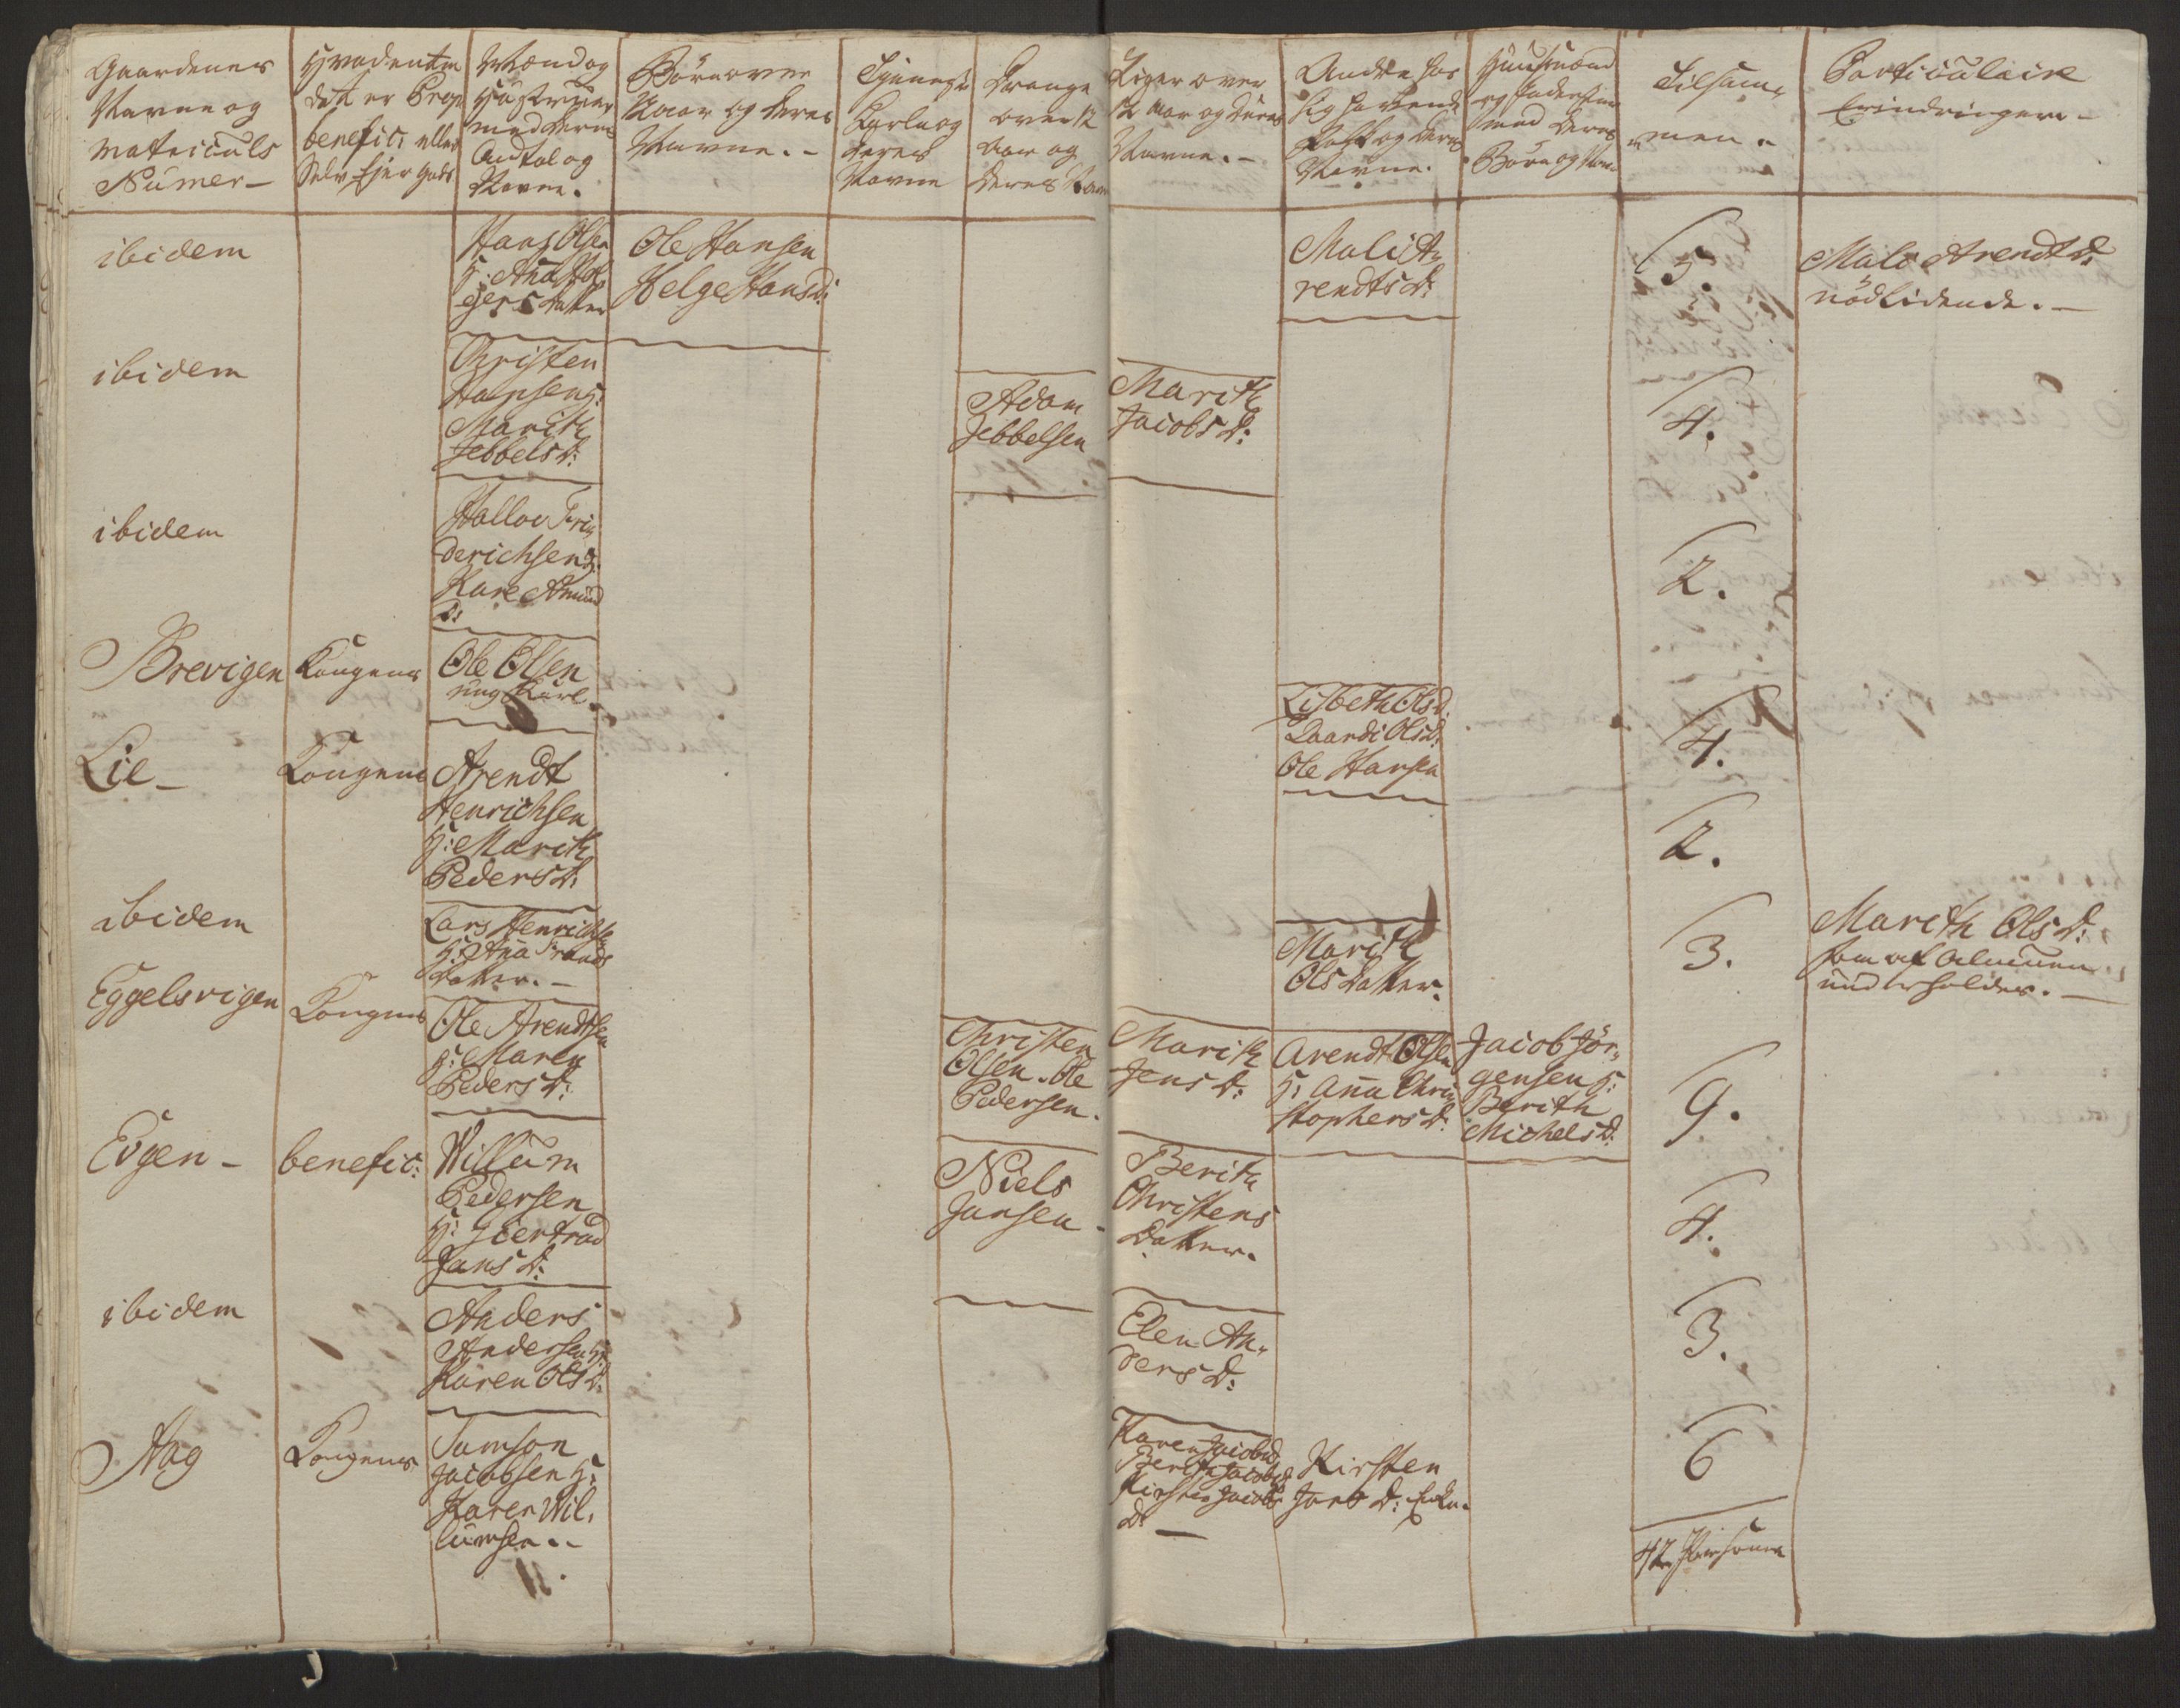 Gaardenes
Nafne og
Matriculs
Numer-
Hvadentin
det er Prop
benefic: eller
Selv Ejer gods
Mænd og
Hustruer
med deres
Antal og
Nafne.
Börn over
12 aar og deres
Nafne.-
Tjeneste
Karle og
deres
Nafne
Drenge
over 12
aar og
deres Nafne
Piger over
12 aar og deres
Nafne.-
Andre hos
sig havende
Folk og deres
Nafne.
Huusmænd
og Inderster
med deres
Börn og
Tilsam-
men.
Particulaire
Erindringer-
ibidem
Hans Olsen
H: Anna Hol
gers datter
Ole Hansen
Helge Hansd:
Mali A-
rendts D:
5.
Male Arendt D:
nödlidende.-
ibidem
Christen
Hansen H:
Marith
Jebbels D:
Adam
Jebbelsen
Marith
Jacobs D:
4.
ibidem
Halloe Fri-
derichsen H:
Kare Amund
D:
2.
Brevigen
Kongens
Ole Olsen
ung Karl.
Lisbeth Ols D.
Baardi Ols D:
Ole Hansen
4.
Lie-
Kongens
Arendt
Henrichsen
H: Marith
Peders D:
2.
ibidem
Lars Henrichs
H: Anna
datter.-
Marith
Ols datter.
3.
Marith Ols D:
som af Almuen
underholdes.-
Eggelsvigen
Kongens
Ole Arendtsen
H: Maren
Peders D:
Christen
Olsen. Ole
Pedersen.
Marith
Jens D:
Arendt Olsen
H: Anna Chri-
stophers D:
Jacob Jör-
gensen H:
Berith
Michels D:
9.
Evgen-
benefic:
Willum
Pedersen
H: Giertrud
Jans D:
Niels
Jansen-
Berith
Christens
Datter.
4.
ibidem
Anders
Andersen H:
Karen Ols D:
Elen An-
ders D:
3.
Aag
Kongens
Samson
Jacobsen H:
Karen Wil-
lumsen.-
Karen Jacobsd
Berith Jacobsd
Kirsten Jacobs
D:-
Kirsten
Jans D: Enke.
6
42 Persone